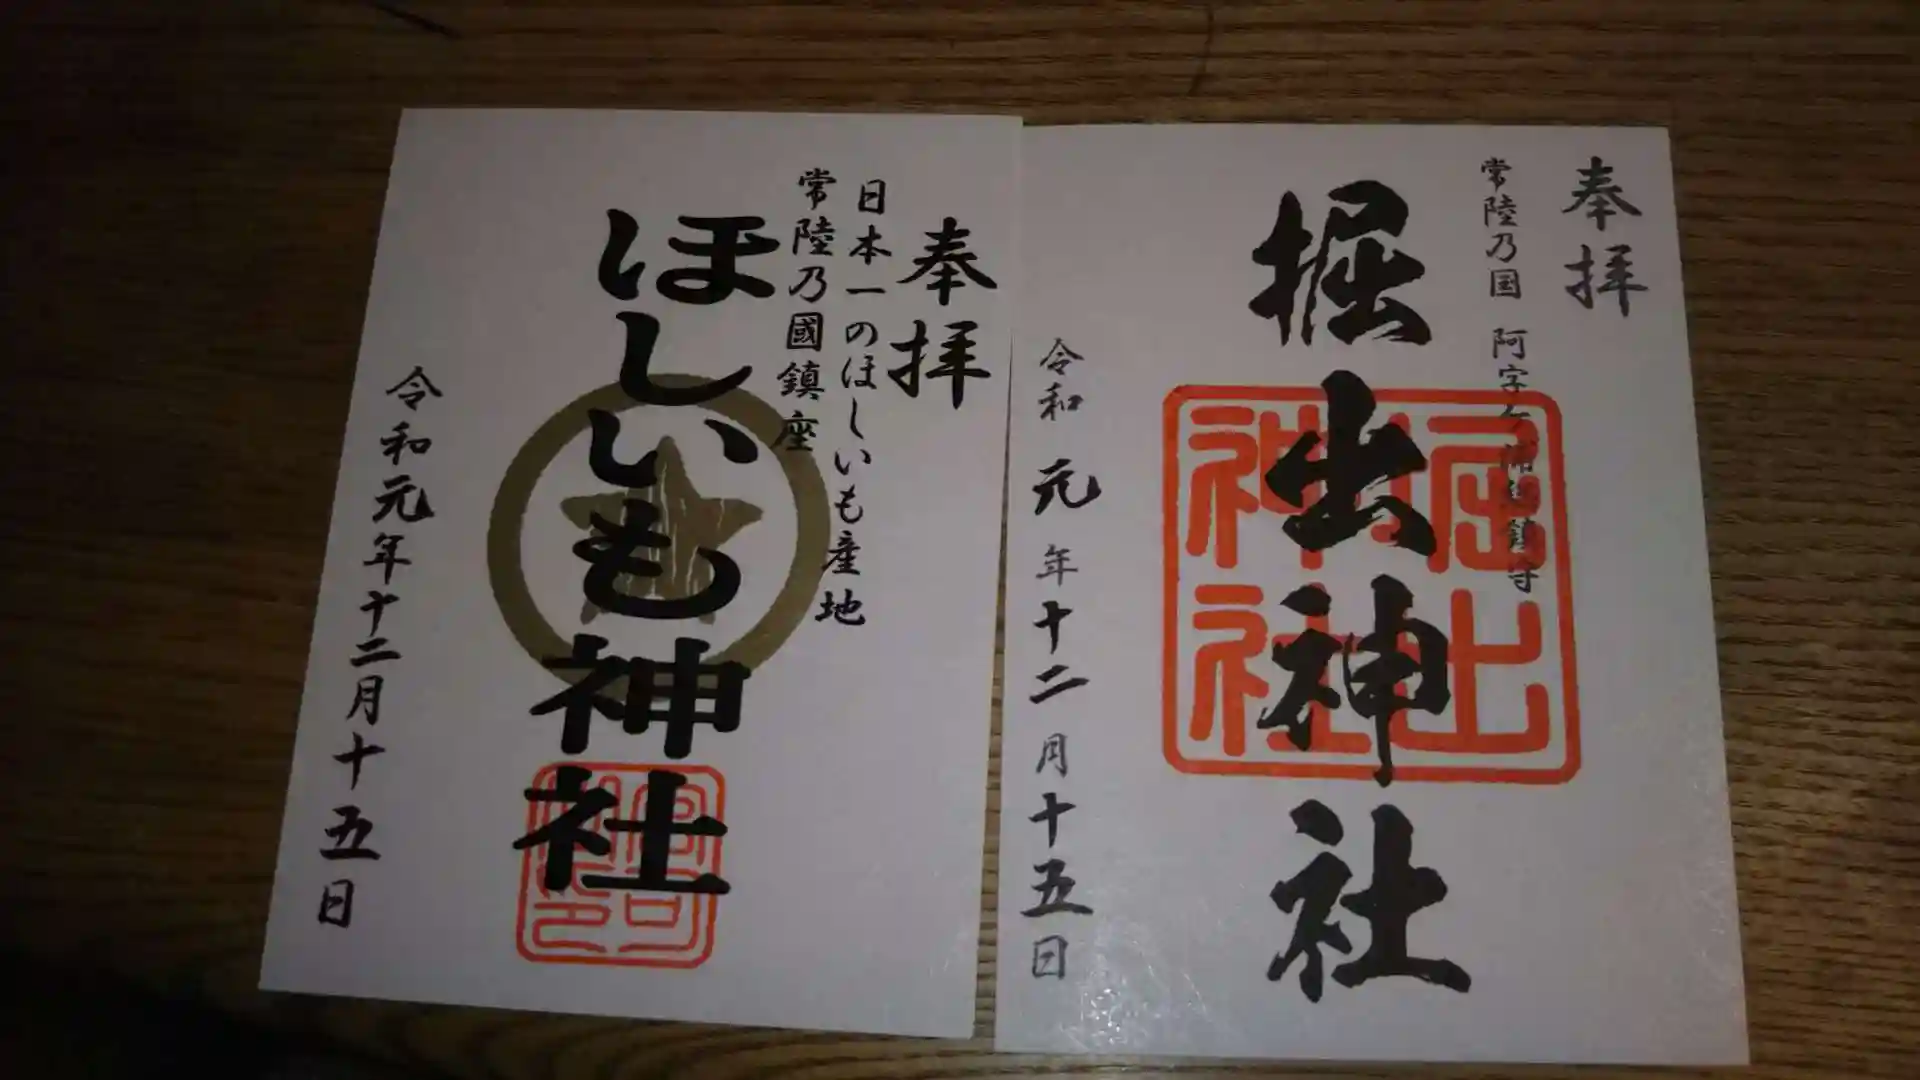 奉拝
常陸乃国 阿字ヶ浦総鎮守
堀出神社
堀出
神社
令和元年十二月十五日
奉拝
日本一のほしいも産地
常陸乃國鎮座
ほしいも神社
宮司
之印
令和元年十二月十五日